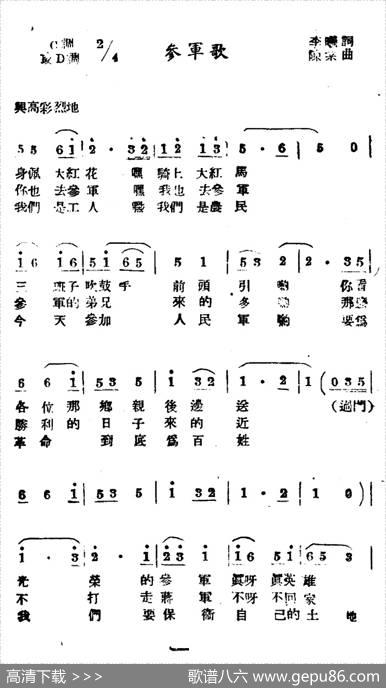 C調 2/4 參軍歌 李曦詞
或D調 陳梁曲
興高彩烈地
5 5 6 i 2 · 3 2 1 2 i 3 5 · 6 5 0
身佩大紅花嘿騎上大紅馬
你也去參軍嘿我也去參軍
我們是工人嘿我們是農民
i 6 i 6 i 5 i 6 5 5 1 5 3 2 2 · 3 5
三班子吹鼓手前頭引喲你看
參軍的弟兄來的多喲那邊
今天參加人民軍喲要為
6 6 i 5 3 5 1 3 2 1 · 2 1 ( 0 3 5
各位那鄉親後邊送(過門)
勝利的日子來的近
革命到底為百姓
6 6 i 5 3 5 1 3 2 1 · 2 1 0 )
i · 3 2 · i i 2 3 i i 6 5 i 6 5 3
光榮的參軍眞呀眞英雄
不打走蔣軍不呀不回家
我們要保衛自己的土地
高清下载 >>> 歌谱八六 www.gepu86.com